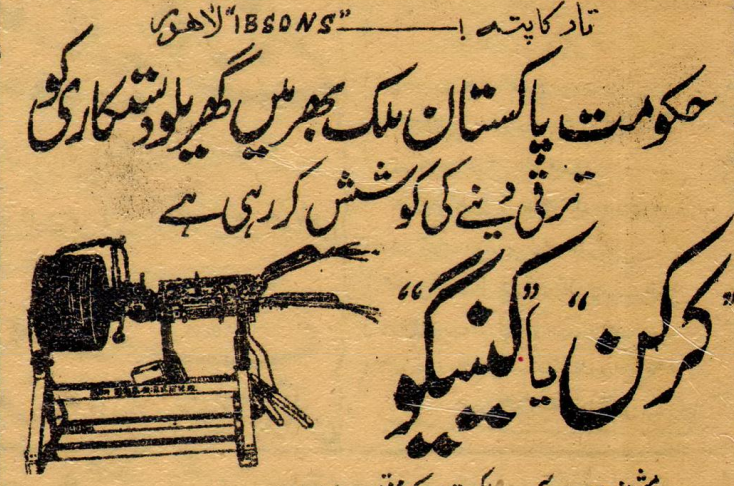 تار کا پتہ !——— "IBSONS" لاہور
حکومت پاکستان ملک بھر میں گھریلو دستکاری کو
ترقی دینے کی کوشش کر رہی ہے
"کرکن" یا "کنیگو"